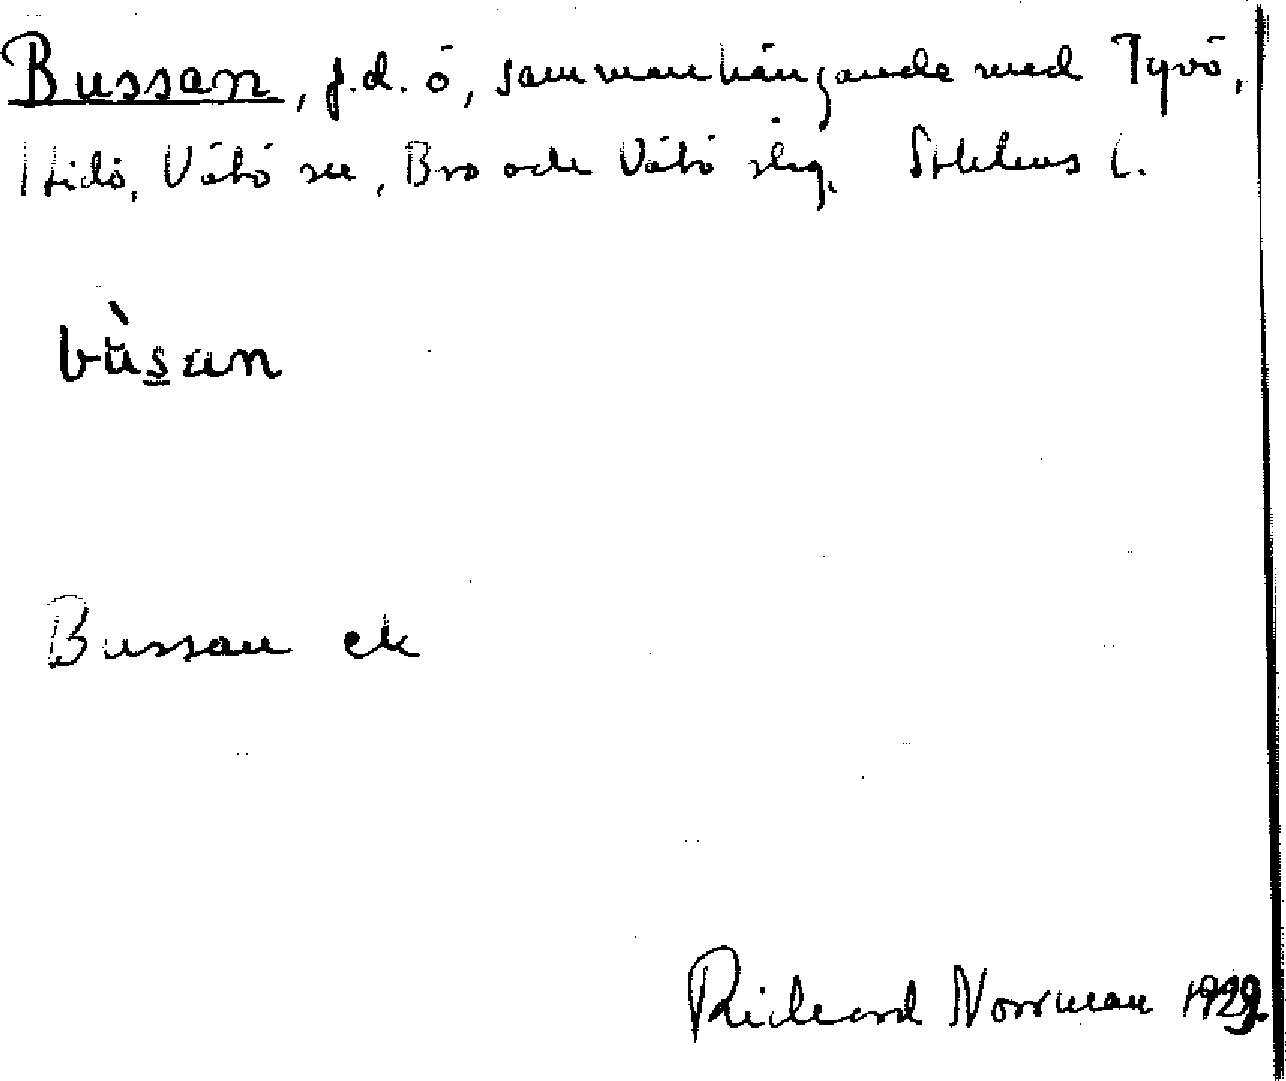 Bussan, f.d. ö, sammanhängande med Tyvö,
Vätö sn, Bro och Vätö slg. Sthlms l.
bùsan
Bussan ek
Richard Norrman